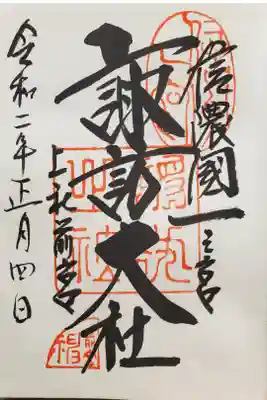 信濃國一之宮
諏訪大社
上社前宮
令和二年正月四日